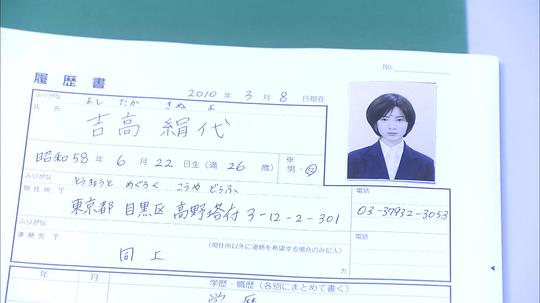 No.
履歴書
2010年 3月 8日現在
ふりがな よし たか きぬ よ
氏名
吉高 絹代
昭和58年 6月 22日生(満 26 歳)
※
男・女
ふりがな とうきょうと めぐろく こうや どうふ
電話
現住所 〒
東京都 目黒区 高野塔付 3-12-2-301
03-37932-3053
ふりがな
電話
連絡先 〒
(現住所以外に連絡を希望する場合のみ記入)
同上
方
年 月
学歴・職歴(各別にまとめて書く)
学歴